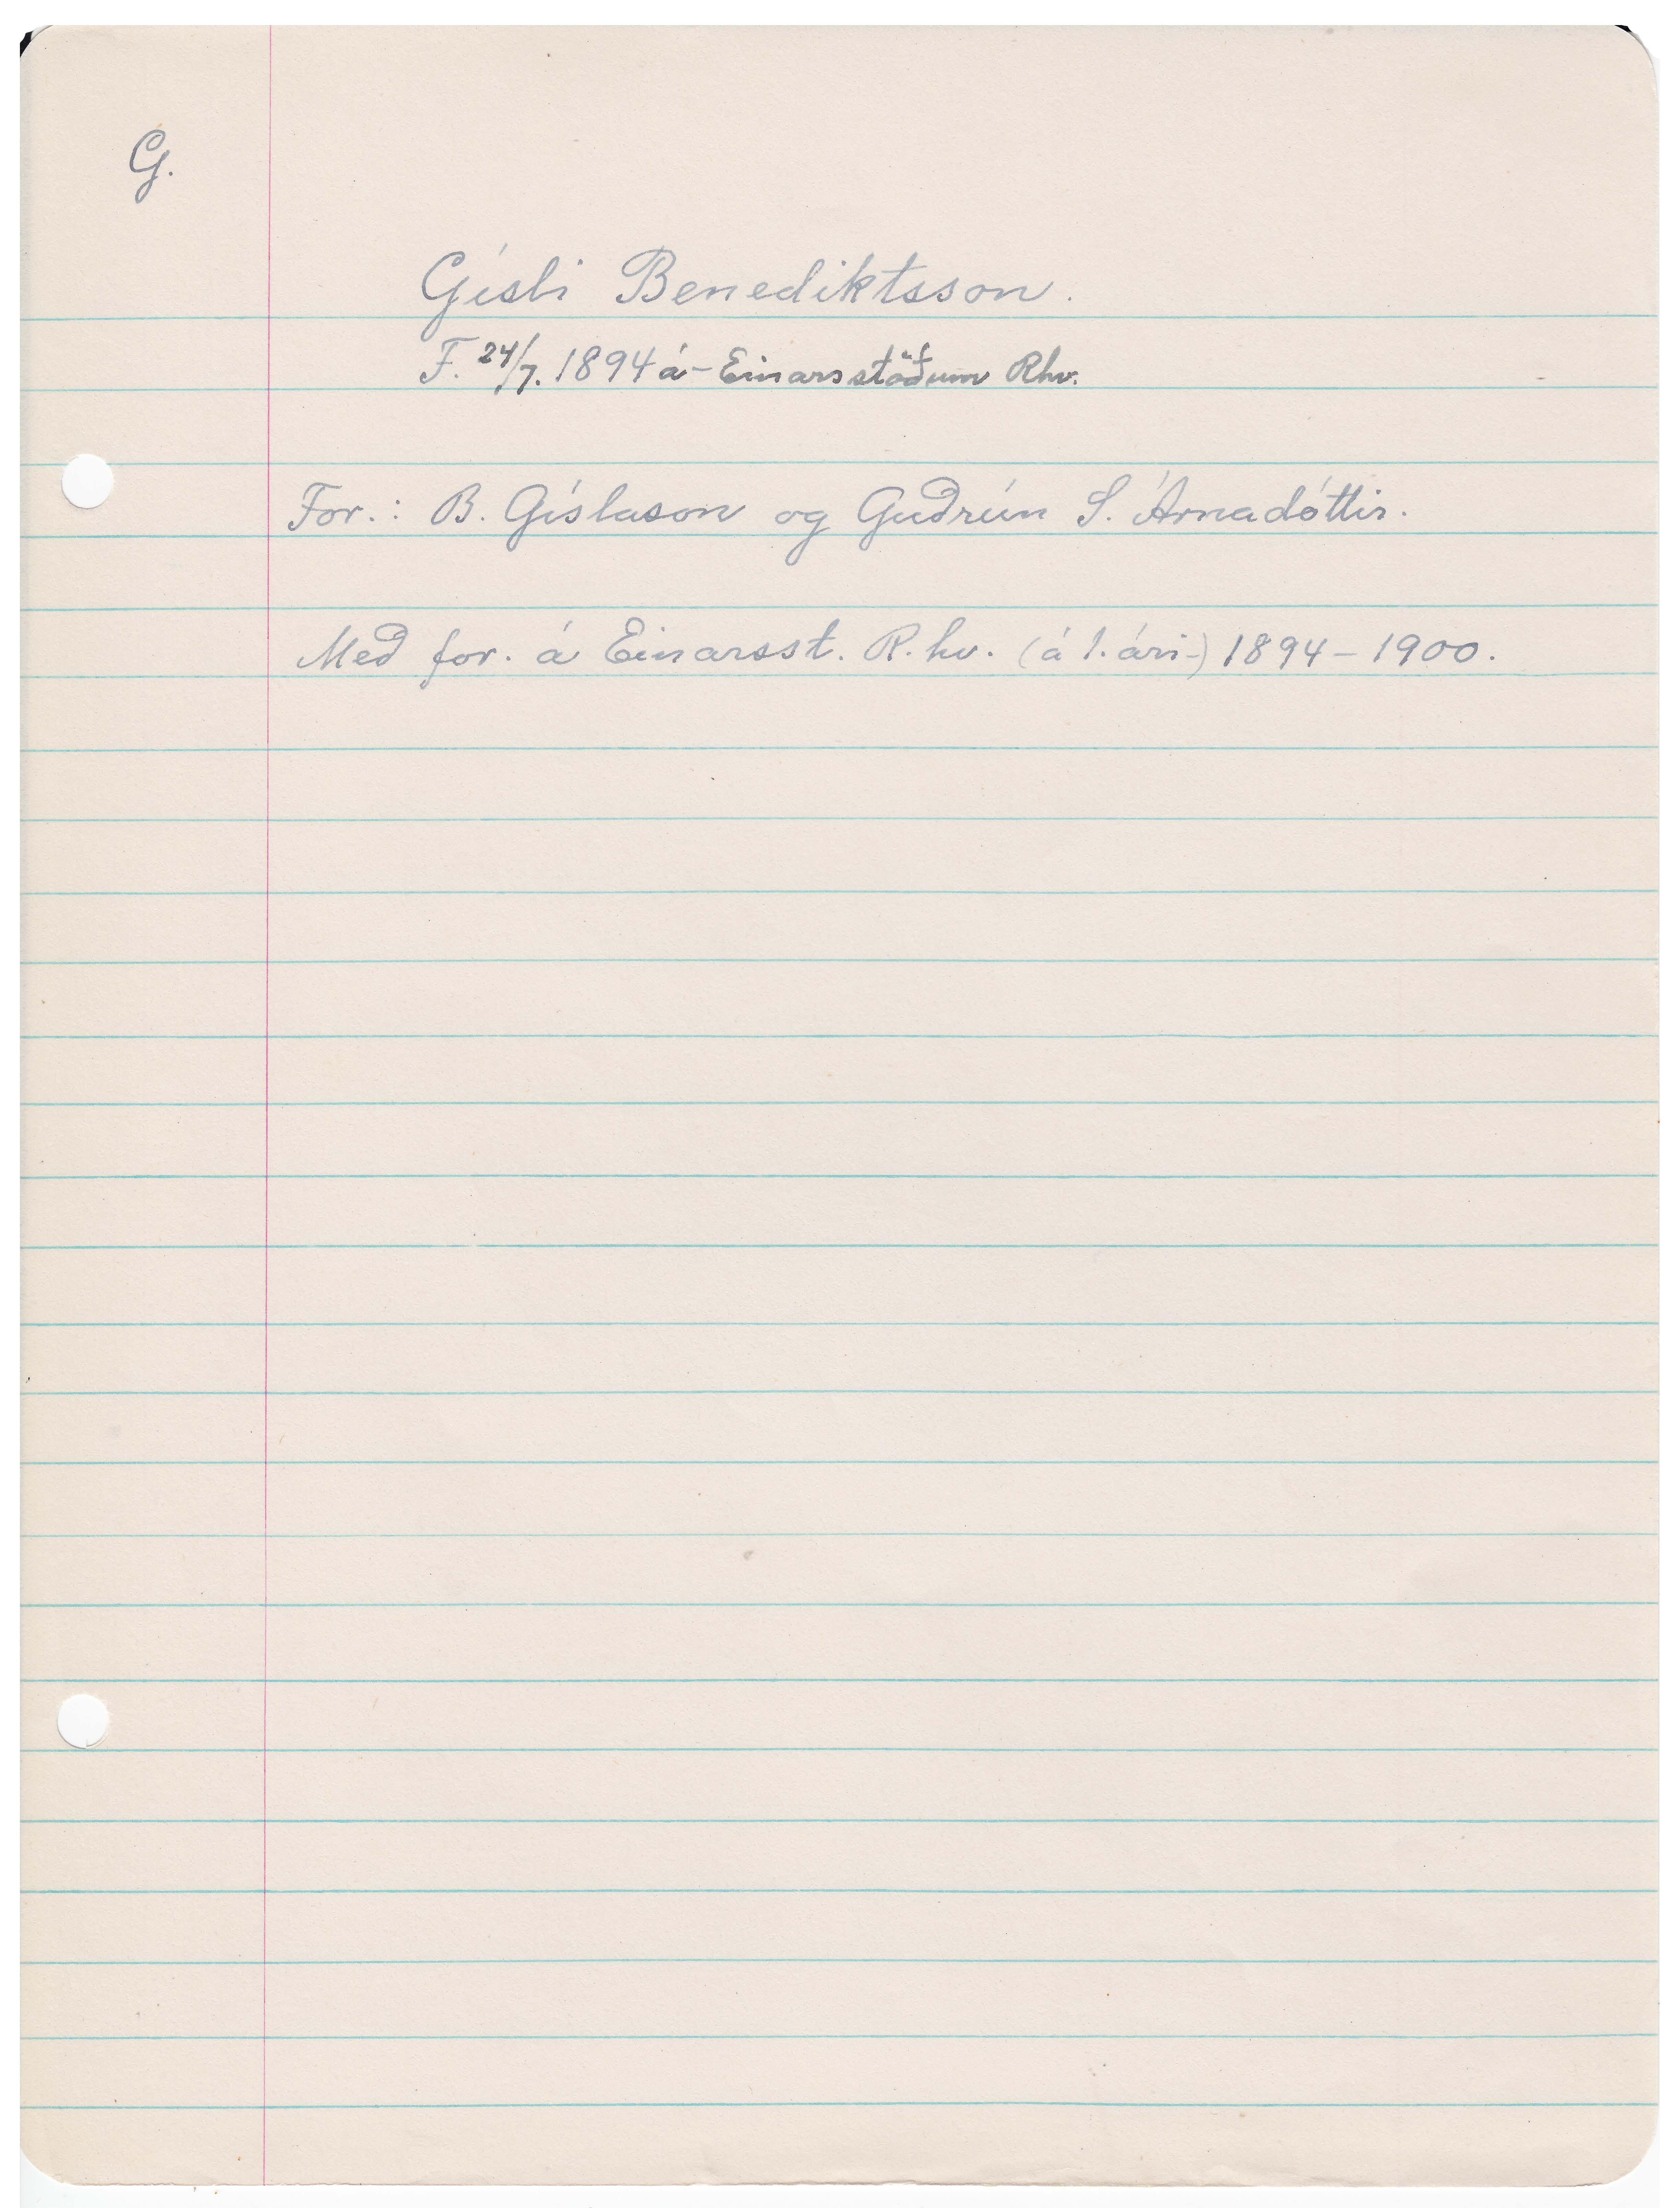 G.
Gísli Benediktsson.
F. 24/7. 1894 á - Einarsstöðum Rhv.
For.: B. Gíslason og Guðrún S. Árnadóttir.
Með for. á Einarsst. R.hv. (á 1. ári-) 1894 - 1900.